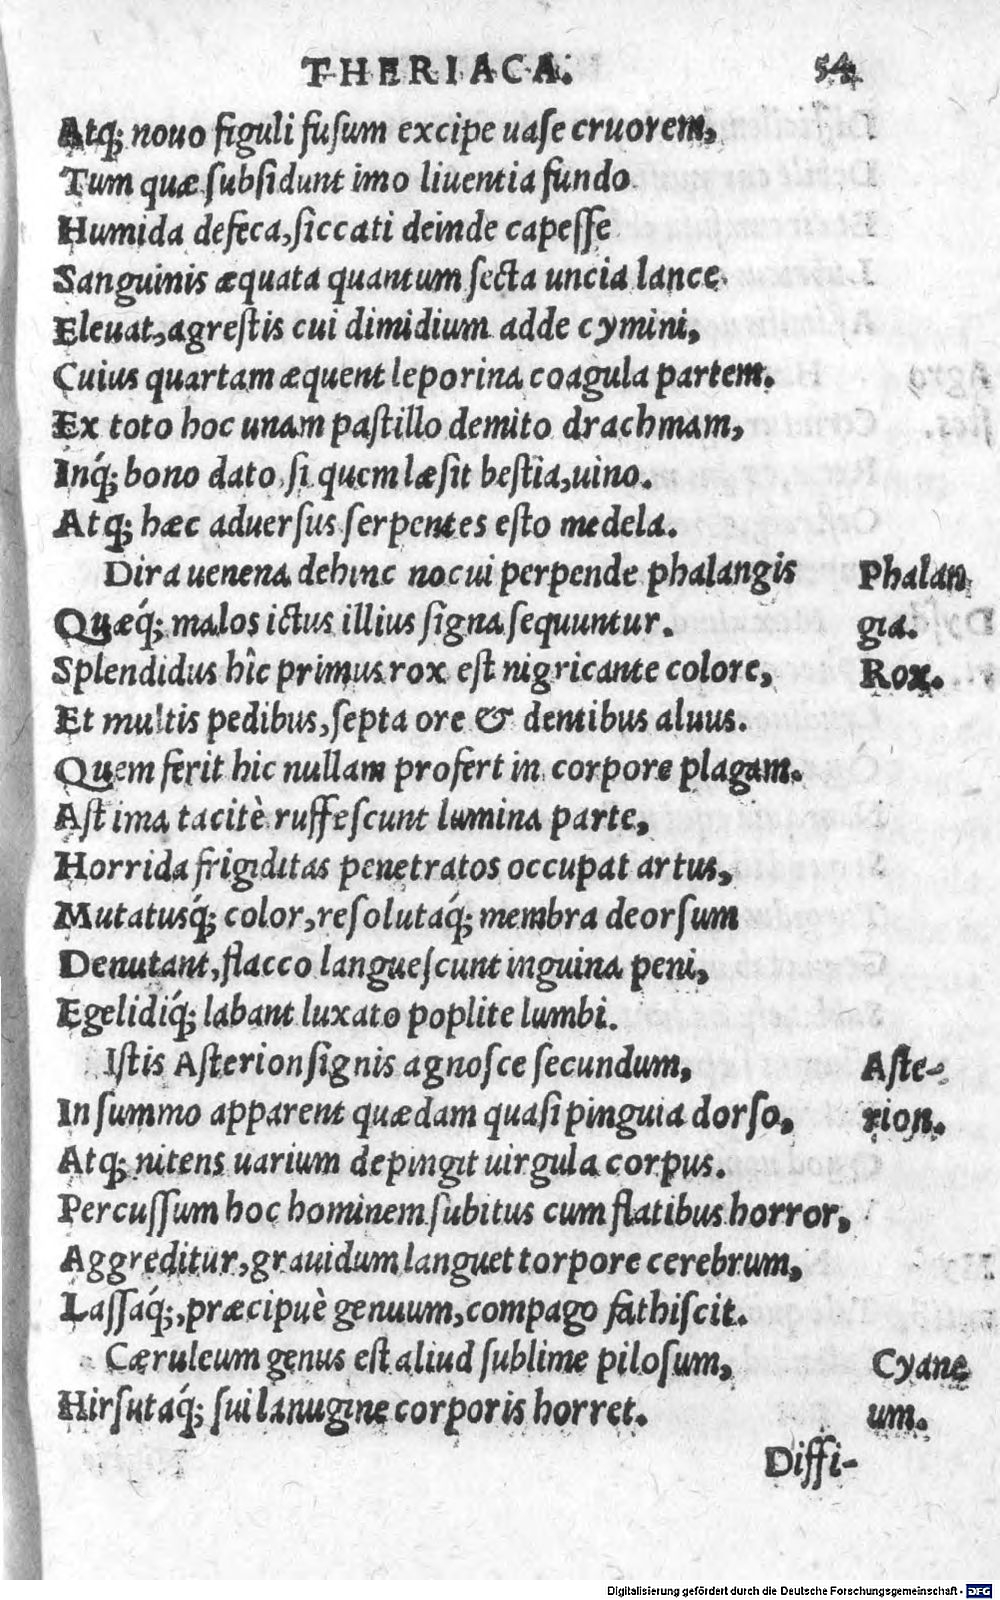 THERIACA. 54
Atq; nouo figuli fuſum excipe uaſe cruorem,
Tum quæ ſubſidunt imo liuentia fundo
Humida defeca, ſiccati deinde capeſſe
Sanguinis æquata quantum ſecta uncia lance
Eleuat, agreſtis cui dimidium adde cymini,
Cuius quartam æquent leporina coagula partem.
Ex toto hoc unam paſtillo demito drachmam,
Inq́; bono dato, ſi quem læſit beſtia, uino.
Atq; hæc aduerſus ſerpentes eſto medela.
Dira uenena dehinc nocui perpende phalangis Phalan
Quæq́; malos ictus illius ſigna ſequuntur. gia.
Splendidus hîc primus rox eſt nigricante colore, Rox.
Et multis pedibus, ſepta ore & dentibus aluus.
Quem ferit hic nullam profert in corpore plagam.
Aſt ima tacitè ruffeſcunt lumina parte,
Horrida frigiditas penetratos occupat artus,
Mutatusq́; color, reſolutaq́; membra deorſum
Denutant, flacco langueſcunt inguina peni,
Egelidiq́; labant luxato poplite lumbi.
Iſtis Aſterion ſignis agnoſce ſecundum, Aſte-
In ſummo apparent quædam quaſi pinguia dorſo, rion.
Atq; nitens uarium depingit uirgula corpus.
Percuſſum hoc hominem ſubitus cum flatibus horror,
Aggreditur, grauidum languet torpore cerebrum,
Laſſaq́;, præcipuè genuum, compago fathiſcit.
Cæruleum genus eſt aliud ſublime piloſum, Cyane
Hirſutaq́; ſui lanugine corporis horret. um.
Diffi-
Digitalisierung gefördert durch die Deutsche Forschungsgemeinschaft - DFG